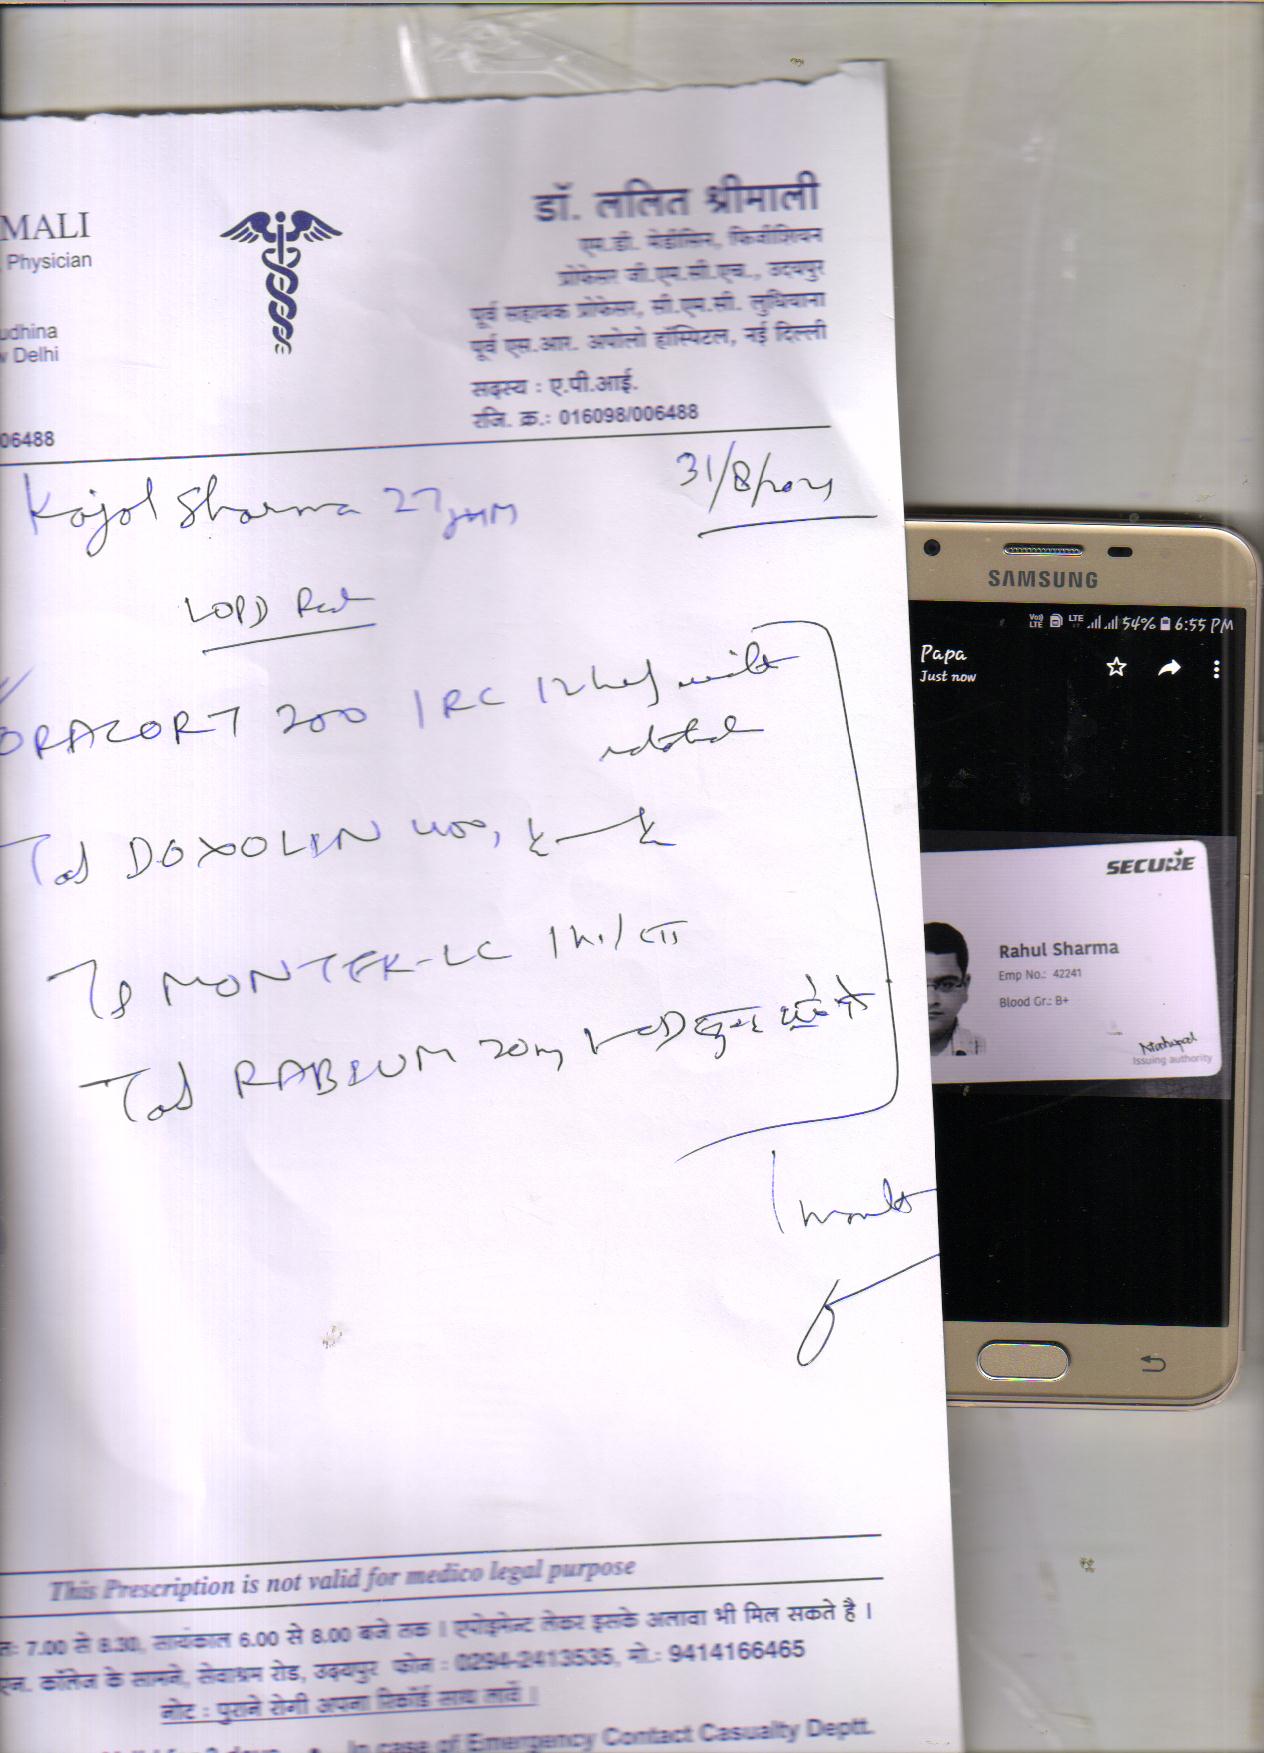 MALI
Physician
udhina
w Delhi
06488
डॉ. ललित श्रीमाली
एम.डी. मेडीसिन, फिजीशियन
प्रोफेसर जी.एम.सी.एच., उदयपुर
पूर्व सहायक प्रोफेसर, सी.एम.सी. लुधियाना
पूर्व एस.आर. अपोलो हॉस्पिटल, नई दिल्ली
सदस्य : ए.पी.आई.
रजि. क्र.: 016098/006488
Kajol Sharma 27
31/8/
ORACORT 200 1 RC 12
Tab DOXOLIN 400,
MONTEK-LC
Tab RABIUM 20mg
1 month
This Prescription is not valid for medico legal purpose
7.00 से 8.30, सायंकाल 6.00 से 8.00 बजे तक । एपोइमेन्ट लेकर इसके अलावा भी मिल सकते है ।
एन. कॉलेज के सामने, सेवाश्रम रोड, उदयपुर फोन : 0294-2413535, मो.: 9414166465
नोट : पुराने रोगी अपना रिकॉर्ड साथ लावें ।
In case of Emergency Contact Casualty Deptt.
SAMSUNG
VoJ LTE LTE 54% 6:55 PM
Papa
Just now
SECURE
Rahul Sharma
Emp No.: 42241
Blood Gr.: B+
Issuing authority